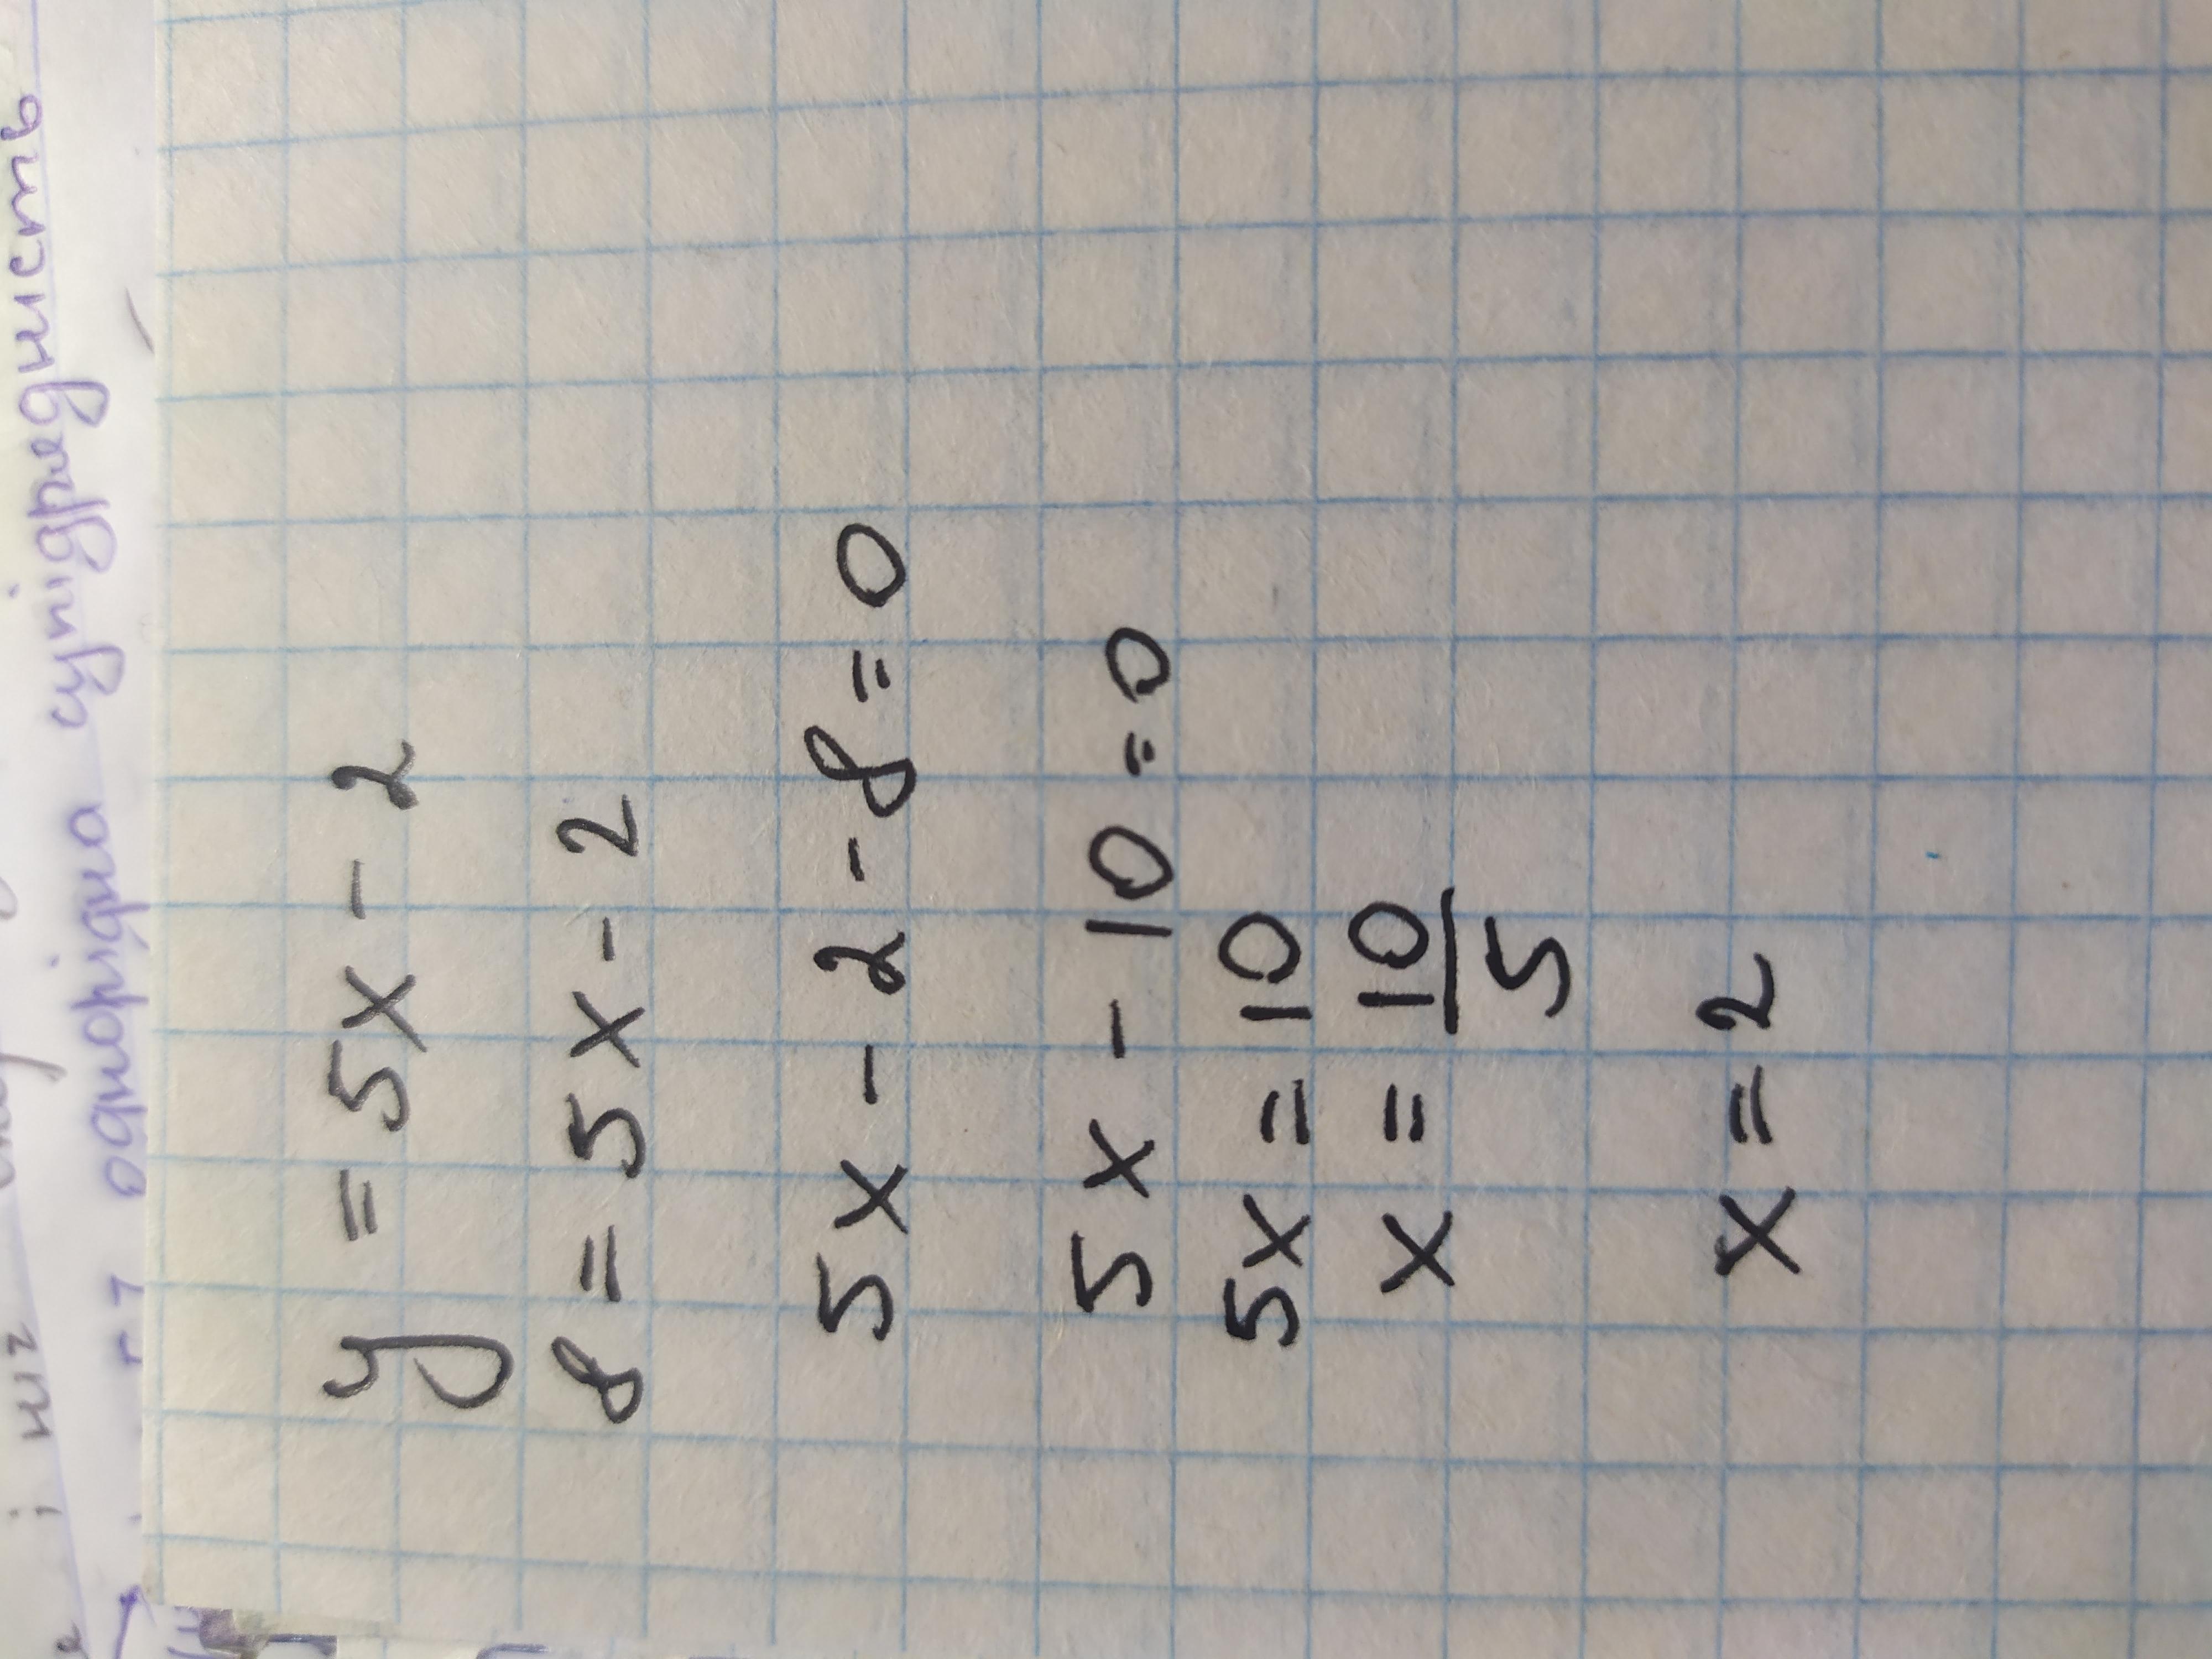 однорідна супідрядність
y = 5x - 2
8 = 5x - 2
5x - 2 - 8 = 0
5x - 10 = 0
5x = 10
x = 10/5
x = 2